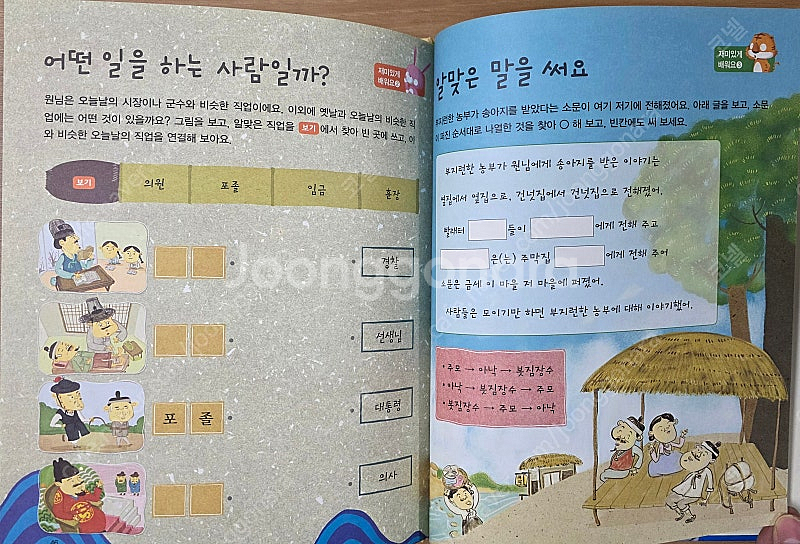 어떤 일을 하는 사람일까?
재미있게
배워요 2
원님은 오늘날의 시장이나 군수와 비슷한 직업이에요. 이외에 옛날과 오늘날의 비슷한 직
업에는 어떤 것이 있을까요? 그림을 보고, 알맞은 직업을 보기 에서 찾아 빈 곳에 쓰고, 이
와 비슷한 오늘날의 직업을 연결해 보아요.
보기 의원 포졸 임금 훈장
경찰
선생님
포 졸
대통령
의사
알맞은 말을 써요
재미있게
배워요 3
부지런한 농부가 송아지를 받았다는 소문이 여기 저기에 전해졌어요. 아래 글을 보고, 소문
이 퍼진 순서대로 나열한 것을 찾아 ○ 해 보고, 빈칸에도 써 보세요.
부지런한 농부가 원님에게 송아지를 받은 이야기는
옆집에서 옆집으로, 건넛집에서 건넛집으로 전해졌어.
빨래터 들이 에게 전해 주고
은(는) 주막집 에게 전해 주어
소문은 금세 이 마을 저 마을에 퍼졌어.
사람들은 모이기만 하면 부지런한 농부에 대해 이야기했어.
• 주모 → 아낙 → 봇짐장수
• 아낙 → 봇짐장수 → 주모
• 봇짐장수 → 주모 → 아낙
joonggonara